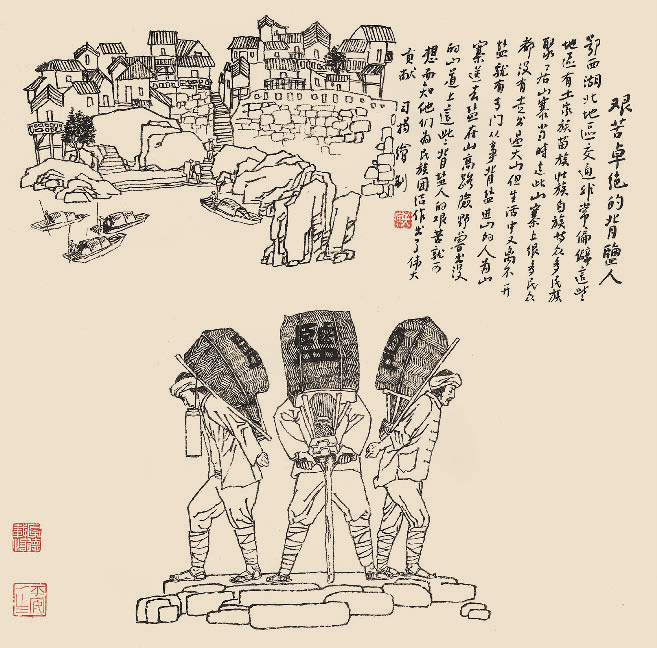 艰苦卓绝的背鹽人
鄂西湖北地區交通非常偏僻這些
地區有土家族苗族壮族白族等众多民族
聚居山寨当时這些山寨上很多民众
都没有走出過大山但生活中又离不开
盐就有专门从事背盐進山的人为山
寨送去盐在山高路險野獸出没
的山道上這些背盐人的艰苦就可
想而知他们为民族团结作出了伟大
贡献
鹽